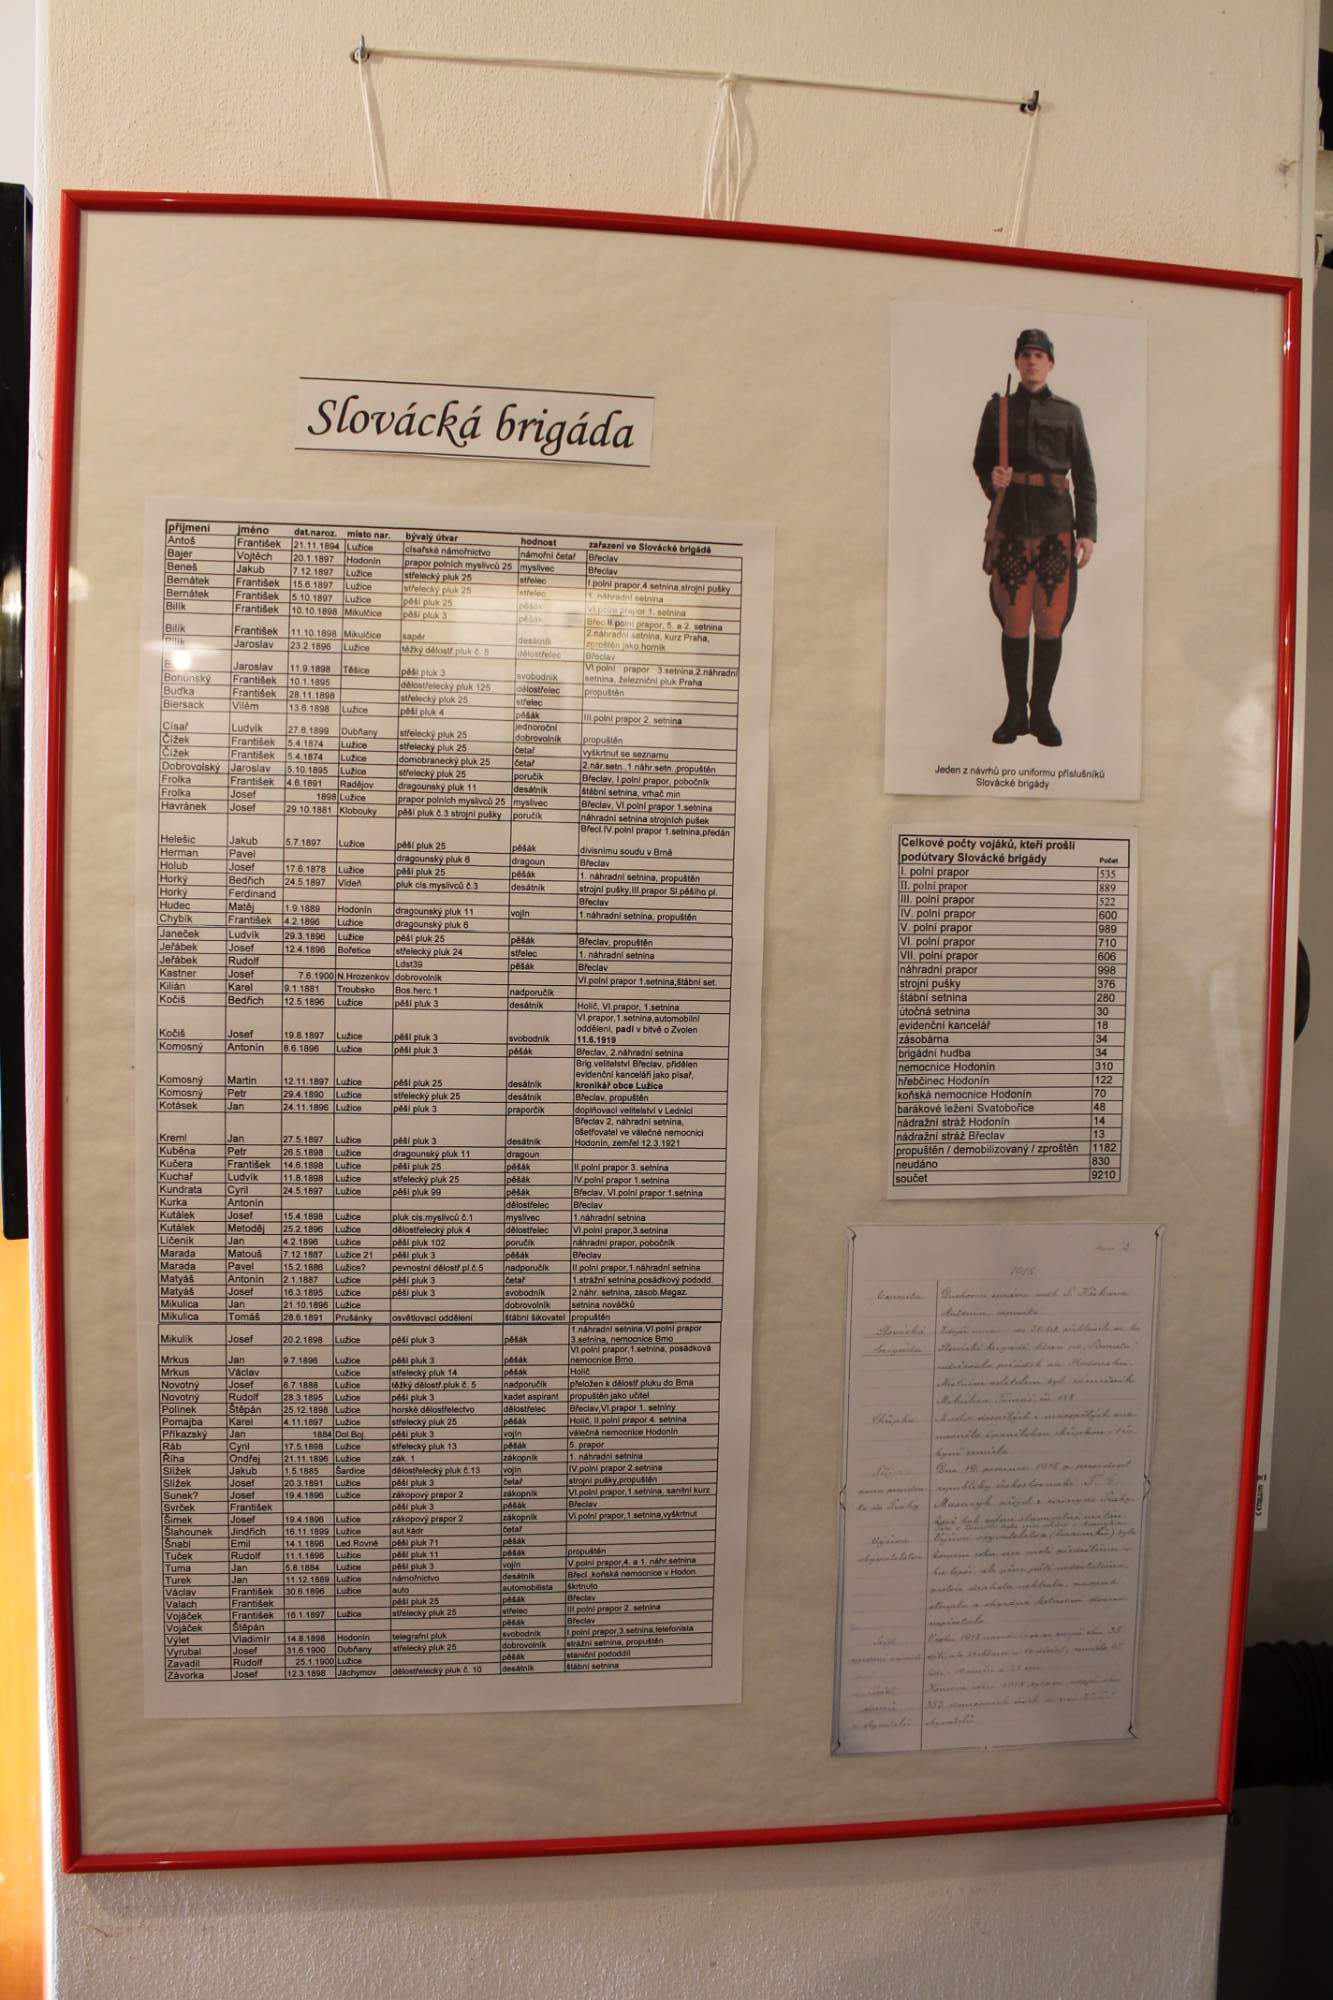 Slovácká brigáda
příjmení jméno dat.naroz. místo nar. bývalý útvar hodnost zařazení ve Slovácké brigádě
Antoš František 21.11.1894 Lužice císařské námořnictvo námořní četař Břeclav
Bajer Vojtěch 20.1.1897 Hodonín prapor polních myslivců 25 myslivec Břeclav
Beneš Jakub 7.12.1897 Lužice střelecký pluk 25 střelec I.polní prapor,4.setnina,strojní pušky
Bernátek František 15.6.1897 Lužice střelecký pluk 25 střelec 1. náhradní setnina
Bernátek František 5.10.1897 Lužice pěší pluk 25 pěšák VI.polní prapor 1. setnina
Bilík František 10.10.1898 Mikulčice pěší pluk 3 pěšák Břec.II.polní prapor, 5. a 2. setnina
Bilík František 11.10.1898 Mikulčice sapér desátník 2.náhradní setnina, kurz Praha, zproštěn jako horník
Bilík Jaroslav 23.2.1896 Lužice těžký dělostř.pluk č. 8 dělostřelec Břeclav
Jaroslav 11.9.1898 Těšice pěší pluk 3 svobodník VI.polní prapor 3.setnina,2.náhradní setnina, železniční pluk Praha
Bohunský František 10.1.1895 dělostřelecký pluk 125 dělostřelec propuštěn
Buďka František 28.11.1898 střelecký pluk 25 střelec
Biersack Vilém 13.6.1898 Lužice pěší pluk 4 pěšák III.polní prapor 2. setnina
Císař Ludvík 27.8.1899 Dubňany střelecký pluk 25 jednoroční dobrovolník propuštěn
Čížek František 5.4.1874 Lužice střelecký pluk 25 četař vyškrtnut se seznamu
Čížek František 5.4.1874 Lužice domobranecký pluk 25 četař 2.nár.setn.,1.náhr.setn.,propuštěn
Dobrovolský Jaroslav 5.10.1895 Lužice střelecký pluk 25 poručík Břeclav, I.polní prapor, pobočník
Frolka František 4.6.1891 Radějov dragounský pluk 11 desátník štábní setnina, vrhač min
Frolka Josef 1898 Lužice prapor polních myslivců 25 myslivec Břeclav, VI.polní prapor 1.setnina
Havránek Josef 29.10.1881 Klobouky pěší pluk č.3 strojní pušky poručík náhradní setnina strojních pušek
Helešic Jakub 5.7.1897 Lužice pěší pluk 25 pěšák Břecl.IV.polní prapor 1.setnina,předán divisnímu soudu v Brně
Herman Pavel dragounský pluk 6 dragoun Břeclav
Holub Josef 17.6.1878 Lužice pěší pluk 25 pěšák 1. náhradní setnina, propuštěn
Horký Bedřich 24.5.1897 Vídeň pluk cís.myslivců č.3 desátník strojní pušky,III.prapor Sl.pěšího pl.
Horký Ferdinand Břeclav
Hudec Matěj 1.9.1889 Hodonín dragounský pluk 11 vojín 1.náhradní setnina, propuštěn
Chybík František 4.2.1896 Lužice dragounský pluk 6
Janeček Ludvík 29.3.1896 Lužice pěší pluk 25 pěšák Břeclav, propuštěn
Jeřábek Josef 12.4.1896 Bořetice střelecký pluk 24 střelec 1. náhradní setnina
Jeřábek Rudolf Ldst39 pěšák Břeclav
Kastner Josef 7.6.1900 N.Hrozenkov dobrovolník VI.polní prapor 1.setnina,štábní set.
Kilián Karel 9.1.1881 Troubsko Bos.herc.1 nadporučík
Kočiš Bedřich 12.5.1896 Lužice pěší pluk 3 desátník Holíč, VI.prapor, 1.setnina
Kočiš Josef 19.8.1897 Lužice pěší pluk 3 svobodník VI.prapor,1.setnina,automobilní oddělení, padl v bitvě o Zvolen 11.6.1919
Komosný Antonín 8.6.1896 Lužice pěší pluk 3 pěšák Břeclav, 2.náhradní setnina
Komosný Martin 12.11.1897 Lužice pěší pluk 25 desátník Brig.velitelství Břeclav, přidělen evidenční kanceláři jako písař, kronikář obce Lužice
Komosný Petr 29.4.1890 Lužice střelecký pluk 25 desátník Břeclav, propuštěn
Kotásek Jan 24.11.1896 Lužice pěší pluk 3 praporčík doplňovací velitelství v Lednici
Kreml Jan 27.5.1897 Lužice pěší pluk 3 desátník Břeclav 2, náhradní setnina, ošetřovatel ve válečné nemocnici Hodonín, zemřel 12.3.1921
Kuběna Petr 26.5.1898 Lužice dragounský pluk 11 dragoun
Kučera František 14.6.1898 Lužice pěší pluk 25 pěšák II.polní prapor 3. setnina
Kuchař Ludvík 11.8.1898 Lužice střelecký pluk 25 pěšák IV.polní prapor 1.setnina
Kundrata Cyril 24.5.1897 Lužice pěší pluk 99 pěšák Břeclav, VI.polní prapor 1.setnina
Kurka Antonín dělostřelec Břeclav
Kutálek Josef 15.4.1898 Lužice pluk cís.myslivců č.1 myslivec 1.náhradní setnina
Kutálek Metoděj 25.2.1896 Lužice dělostřelecký pluk 4 dělostřelec VI.polní prapor,3.setnina
Ličeník Jan 4.2.1896 Lužice pěší pluk 102 poručík náhradní prapor, pobočník
Marada Matouš 7.12.1887 Lužice 21 pěší pluk 3 pěšák Břeclav
Marada Pavel 15.2.1886 Lužice? pevnostní dělostř.pl.č.5 nadporučík II.polní prapor,1.náhradní setnina
Matyáš Antonín 2.1.1887 Lužice pěší pluk 3 četař 1.strážní setnina,posádkový pododd.
Matyáš Josef 16.3.1895 Lužice pěší pluk 3 svobodník 2.náhr. setnina, zásob.Magaz.
Mikulica Jan 21.10.1896 Lužice dobrovolník setnina nováčků
Mikulica Tomáš 28.6.1891 Prušánky osvětlovací oddělení štábní šikovatel propuštěn
Mikulík Josef 20.2.1898 Lužice pěší pluk 3 pěšák 1.náhradní setnina,VI.polní prapor 3.setnina, nemocnice Brno
Mrkus Jan 9.7.1896 Lužice pěší pluk 3 pěšák VI.polní prapor,1.setnina, posádková nemocnice Brno
Mrkus Václav Lužice střelecký pluk 14 pěšák Holíč
Novotný Josef 6.7.1888 Lužice těžký dělostř.pluk č. 5 nadporučík přeložen k dělostř.pluku do Brna
Novotný Rudolf 28.3.1895 Lužice pěší pluk 3 kadet aspirant propuštěn jako učitel
Polínek Štěpán 25.12.1898 Lužice horské dělostřelectvo dělostřelec Břeclav,VI.prapor 1. setniny
Pomajba Karel 4.11.1897 Lužice střelecký pluk 25 pěšák Holíč, II.polní prapor 4. setnina
Příkazský Jan 1884 Dol.Boj. pěší pluk 3 vojín válečná nemocnice Hodonín
Ráb Cyril 17.5.1898 Lužice střelecký pluk 13 pěšák 5. prapor
Říha Ondřej 21.11.1896 Lužice zák. 1 zákopník 1. náhradní setnina
Slížek Jakub 1.5.1885 Šardice dělostřelecký pluk č.13 vojín IV.polní prapor 2.setnina
Slížek Josef 20.3.1891 Lužice pěší pluk 3 četař strojní pušky,propuštěn
Sunek? Josef 19.4.1896 Lužice zákopový prapor 2 zákopník VI.polní prapor,1.setnina, sanitní kurz
Svrček František pěší pluk 3 pěšák Břeclav
Šimek Josef 19.4.1896 Lužice zákopový prapor 2 zákopník VI.polní prapor,1.setnina,vyškrtnut
Šlahounek Jindřich 16.11.1899 Lužice aut.kádr četař
Šnabl Emil 14.1.1896 Led.Rovné pěší pluk 71 pěšák
Tuček Rudolf 11.1.1896 Lužice pěší pluk 11 pěšák propuštěn
Tuma Jan 5.8.1884 Lužice pěší pluk 3 vojín V.polní prapor,4. a 1. náhr.setnina
Turek Jan 11.12.1889 Lužice námořnictvo desátník Břecl.,koňská nemocnice v Hodon.
Václav František 30.8.1896 Lužice auto automobilista škrtnuto
Valach František pěší pluk 25 pěšák Břeclav
Vojáček František 16.1.1897 Lužice střelecký pluk 25 střelec III.polní prapor 2. setnina
Vojáček Štěpán pěšák Břeclav
Výlet Vladimír 14.8.1898 Hodonín telegrafní pluk svobodník I.polní prapor,3.setnina,telefonista
Vyrubal Josef 31.6.1900 Dubňany střelecký pluk 25 dobrovolník strážní setnina, propuštěn
Zavadil Rudolf 25.1.1900 Lužice pěšák staniční pododdíl
Závorka Josef 12.3.1898 Jáchymov dělostřelecký pluk č. 10 desátník štábní setnina
Jeden z návrhů pro uniformu příslušníků
Slovácké brigády
Celkové počty vojáků, kteří prošli
podútvary Slovácké brigády Počet
I. polní prapor 535
II. polní prapor 889
III. polní prapor 522
IV. polní prapor 600
V. polní prapor 989
VI. polní prapor 710
VII. polní prapor 606
náhradní prapor 998
strojní pušky 376
štábní setnina 280
útočná setnina 30
evidenční kancelář 18
zásobárna 34
brigádní hudba 34
nemocnice Hodonín 310
hřebčinec Hodonín 122
koňská nemocnice Hodonín 70
barákové ležení Svatobořice 48
nádražní stráž Hodonín 14
nádražní stráž Břeclav 13
propuštěn / demobilizovaný / zproštěn 1182
neudáno 830
součet 9210
1918
Slovácká
brigáda